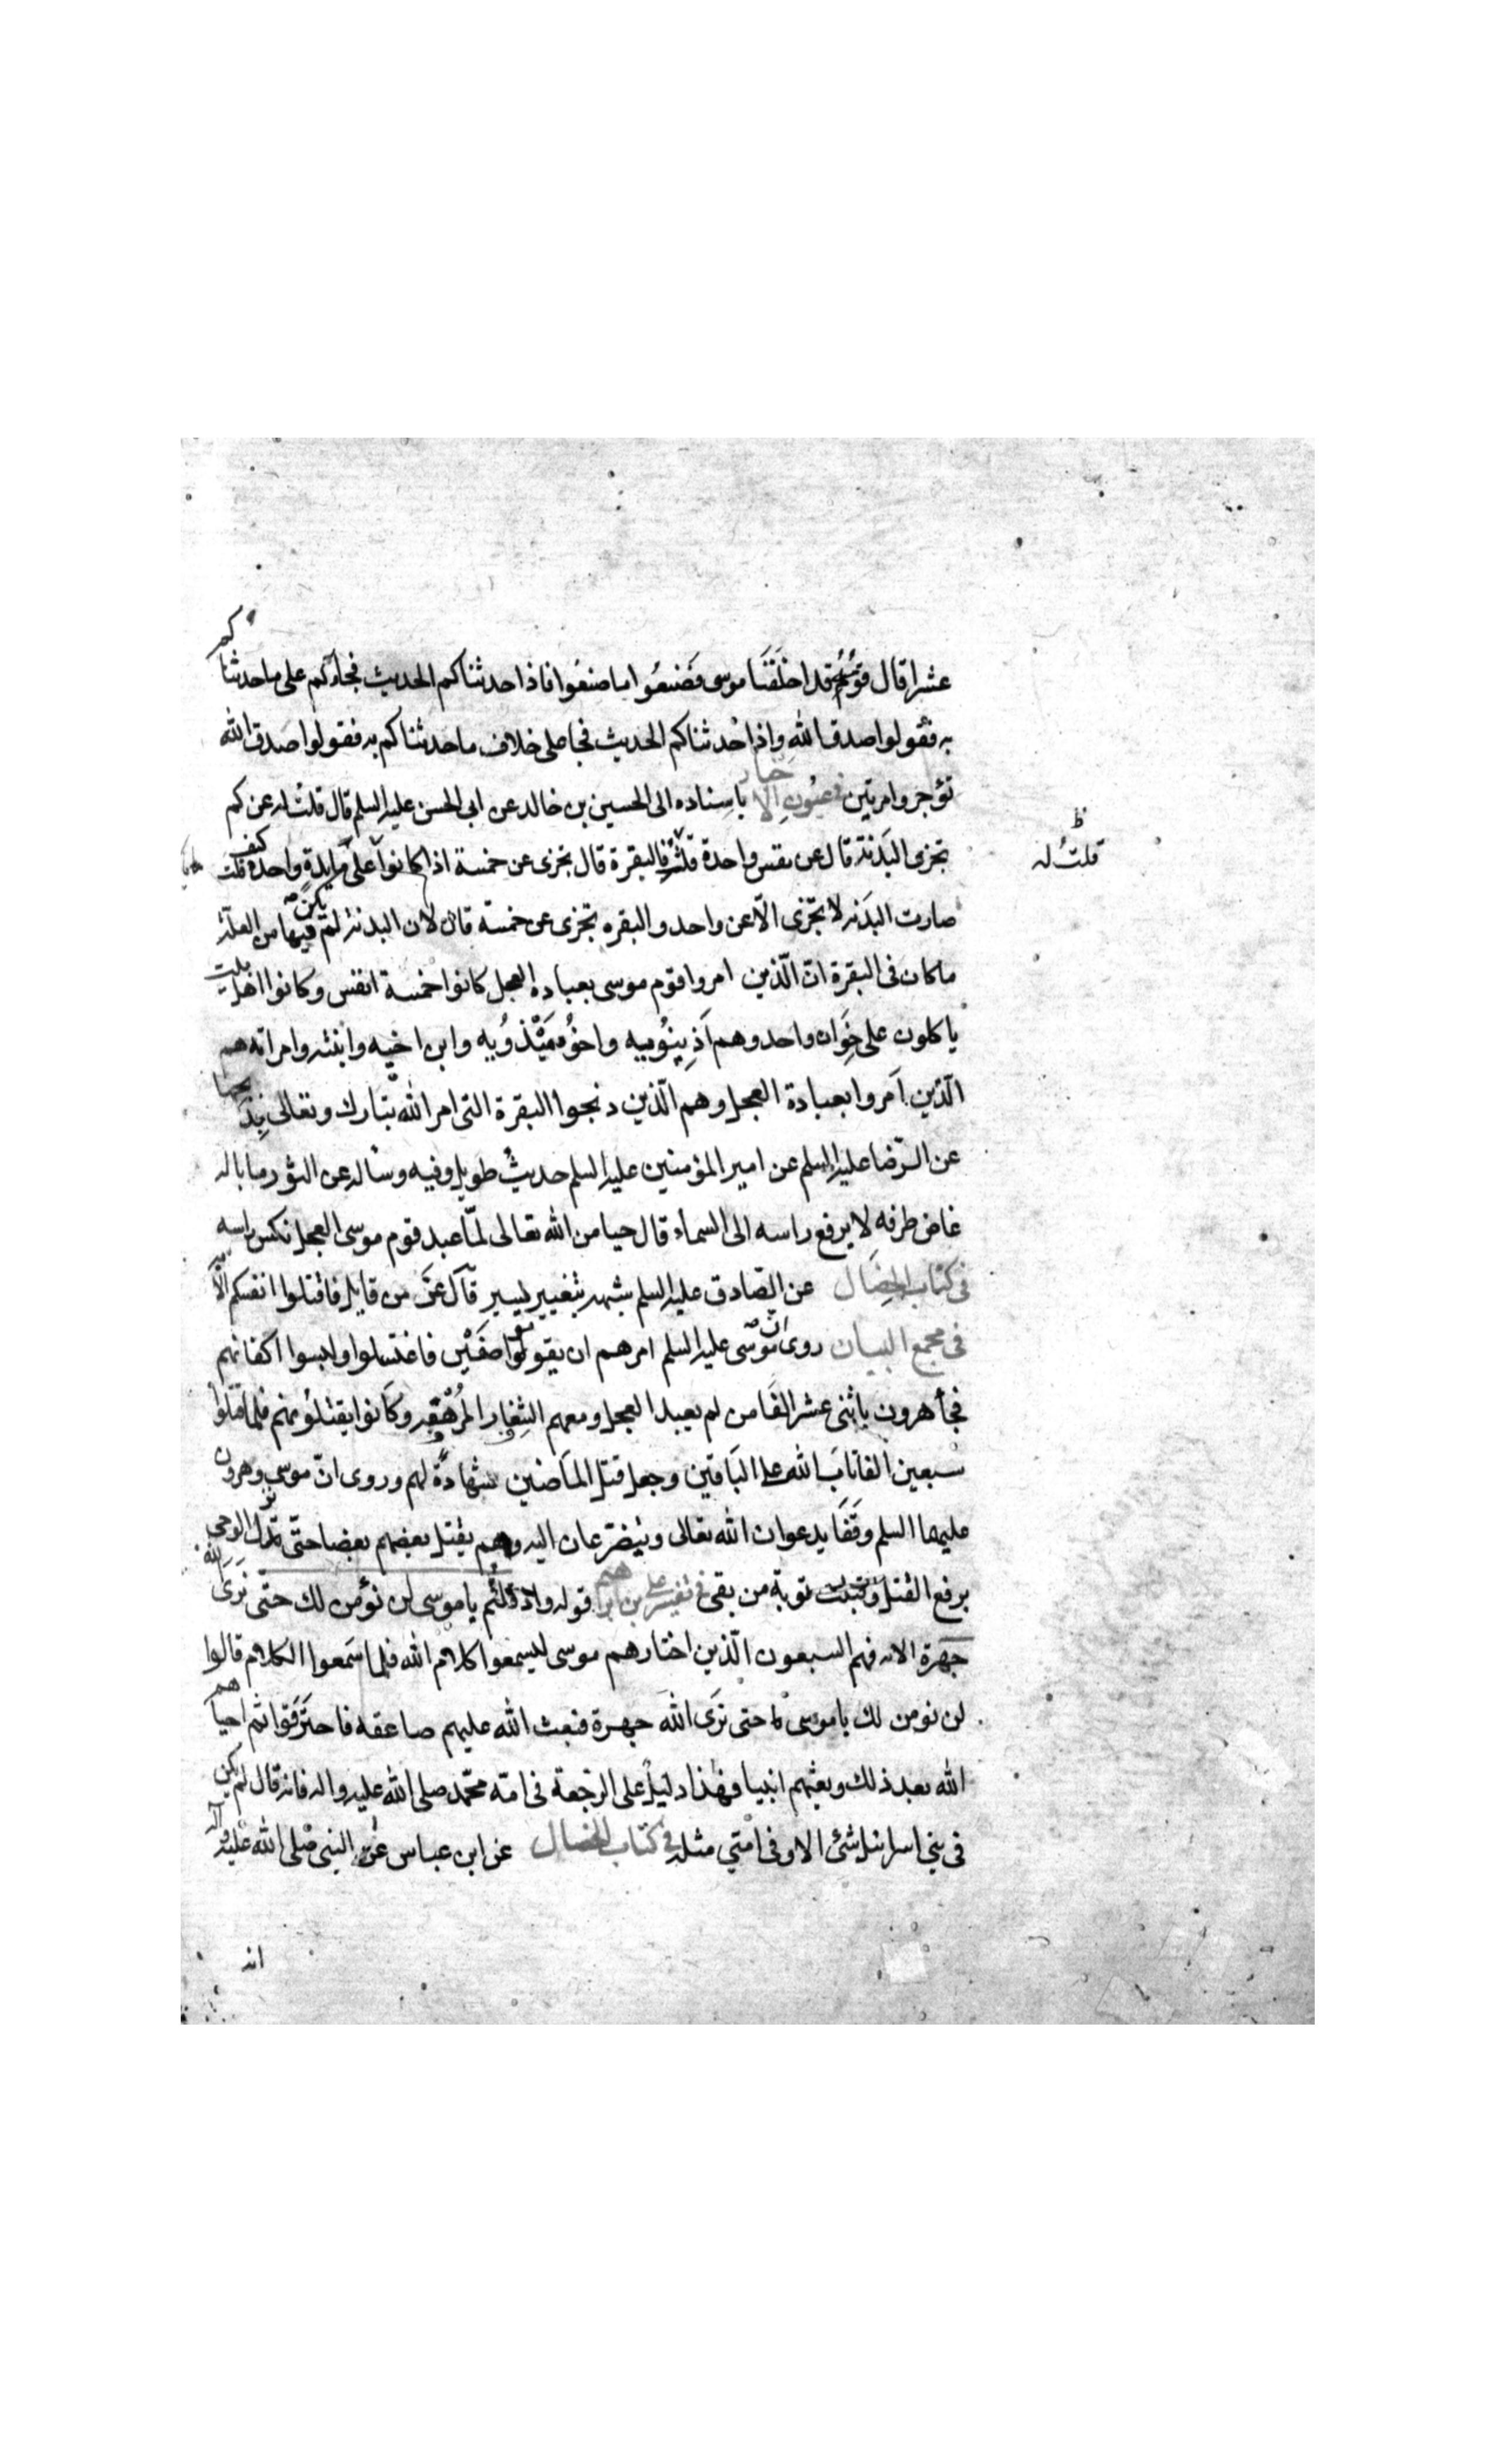 عشرا قال قومه قد اخلفنا موسى فصنعوا ما صنعوا فاذا حدثناكم الحديث فجاءكم على ما حدثناكم
به فقولوا صدق الله واذا حدثناكم الحديث فجا على خلاف ما حدثناكم به فقولوا صدق الله
تؤجروا مرتين في عيون الاخبار باسناده الى الحسين بن خالد عن ابى الحسن عليه السلم قال قلت له عن كم
تجزى البدنة قال عن نفس واحدة قلت فالبقرة قال تجزى عن خمسة اذا كانوا على مايدة واحدة قلت كيف
قلت له
صارت البدنه لا تجزى الّا عن واحد والبقره تجزى عن خمسة قال لان البدنة لم يكن فيها من العلة
ما كان فى البقرة انّ الّذين امروا قوم موسى بعباده العجل كانوا خمسة انفس وكانوا اهل بيت
ياكلون على خوان واحد وهم اذينويه واخوه ميذويه وابن اخيه وابنته وامراته هم
الّذين امروا بعبادة العجل وهم الّذين ذبحوا البقرة التى امر الله تبارك وتعالى بذبحها
عن الرّضا عليه السلم عن امير المؤمنين عليه السلم حديث طويل وفيه وساله عن الثور ما باله
غاض طرفه لا يرفع راسه الى السماء قال حيا من الله تعالى لمّا عبد قوم موسى العجل نكس راسه
فى كتاب الخصال عن الصّادق عليه السلم قال عزّ من قايل فاقتلوا انفسكم
فى مجمع البيان روى ان موسى عليه السلم امرهم ان يقوموا صفّين فاغتسلوا ولبسوا اكفانهم
فجاء هرون باثنى عشر الفا من لم يعبد العجل ومعهم الشفار المرهفة وكانوا يقتلونهم فلما قتلوا
سبعين الفا تاب الله على الباقين وجعل قتل الماضين شهادة لهم وروى انّ موسى وهرون
عليهما السلم وقفا يدعوان الله تعالى ويتضرّعان اليه وهم يقتل بعضهم بعضا حتّى نزل الوحى
برفع القتل وقبلت توبة من بقى فى تفسير على بن ابراهيم قوله واذ قلتم يا موسى لن نؤمن لك حتّى نرى الله
جهرة الايه فهم السبعون الّذين اختارهم موسى ليسمعوا كلام الله فلما سمعوا الكلام قالوا
لن نومن لك يا موسى حتى نرى الله جهرة فبعث الله عليهم صاعقه فاحترقوا ثم احياهم
الله بعد ذلك وبعثهم انبيا فهذا دليل على الرجعة فى امة محمّد صلى الله عليه واله فانه قال لم يكن
فى بنى اسرائيل شئ الا وفى امتى مثله فى كتاب الخصال عن ابن عباس عن النبى صلى الله عليه واله
انه